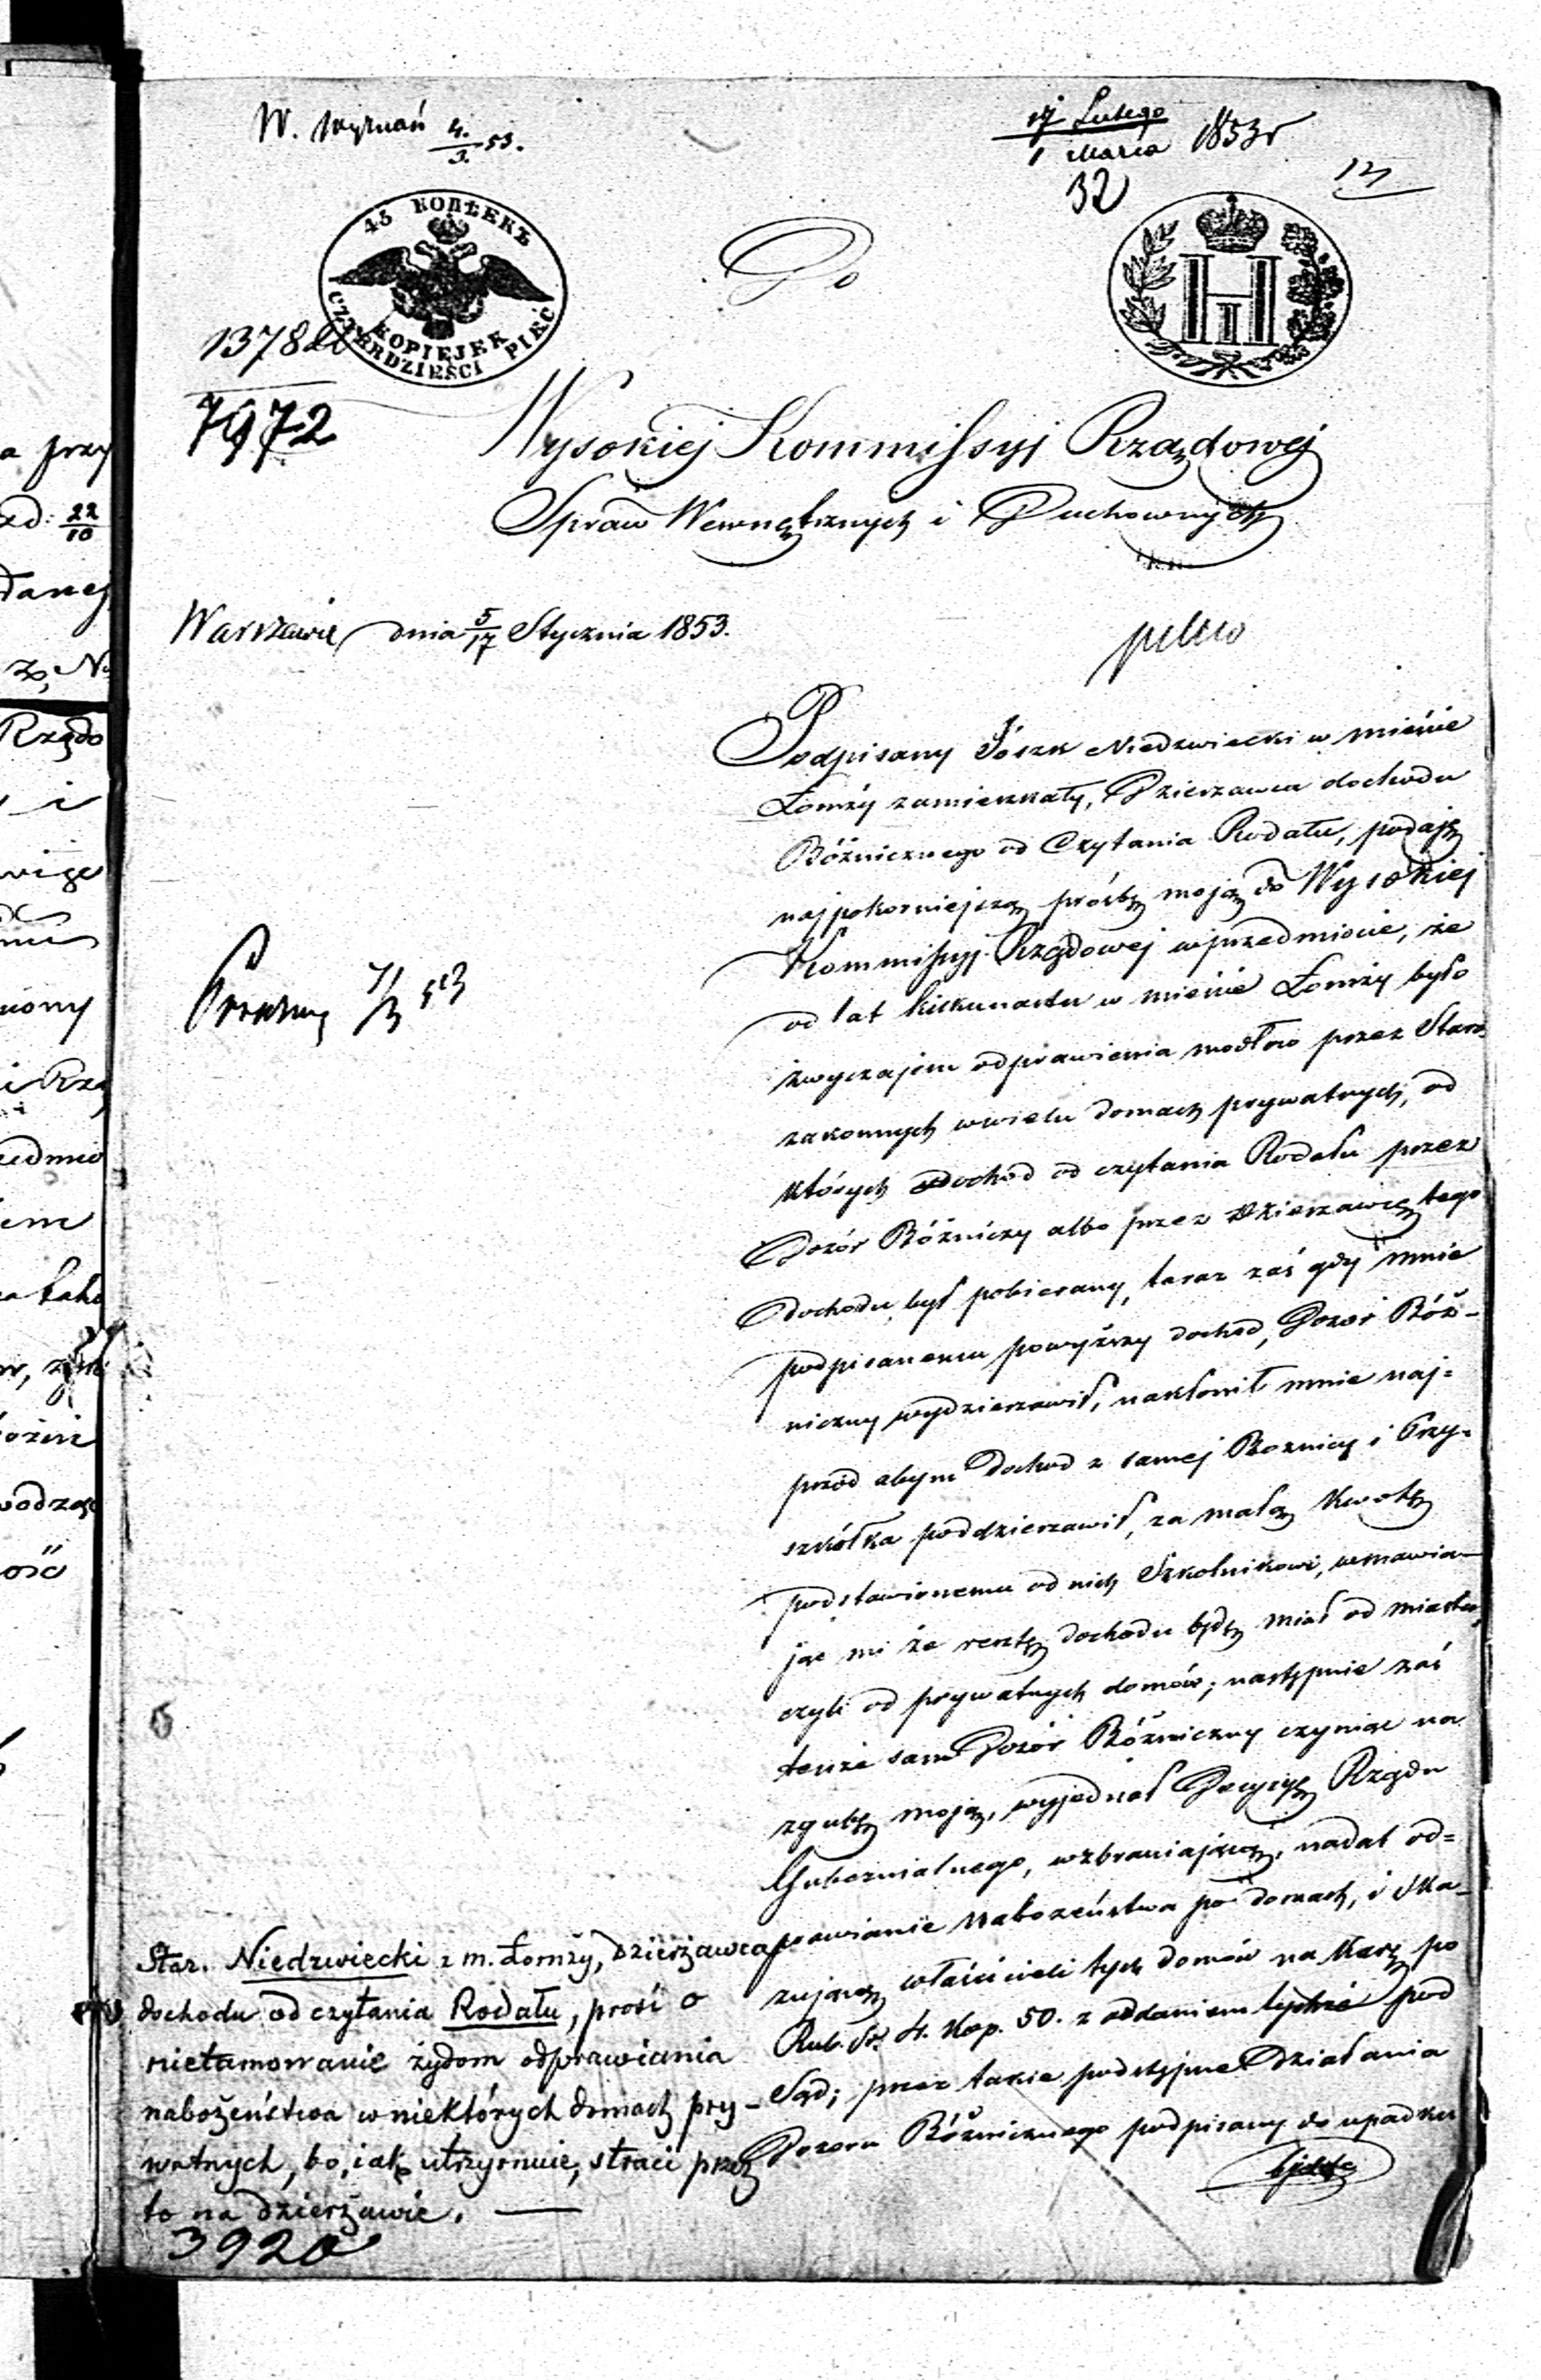 W. Wyznań 4/3 53.
17 Lutego
1 Marca 1853 r
32
13
45 КОПѢЕКЪ
KOPIEJEK
CZTERDZIEŚCI PIEĆ
H I
Do
1378
7972
Wysokiej Kommissyi Rządowej
Spraw Wewnętrznych i Duchownych
Warszawie dnia 5/17 Stycznia 1853.
Podpisany Joszk Niedzwiecki w mieście
Łomży zamieszkały, Dzierzawca dochodu
Bóżnicznego od Czytania Rodału, podaję
najpokorniejszą prośbę moją do Wysokiej
Kommissyj Rządowej w przedmiocie, że
od lat kilkunastu w mieście Łomży było
zwyczajem odprawienia modłow przez Staro-
zakonnych w wielu domach prywatnych, od
których dochod od czytania Rodału przez
Dozór Bóżniczy albo przez Dzierzawcę tego
dochodu był pobierany, teraz zaś gdy mnie
podpisanemu powyższy dochod, Dozor Bóż-
niczny wydzierzawił, nakłonił mnie naj-
przód abym Dochod z samej Boznicy i Przy-
szkółka poddzierzawił, za małą kwotę
podstawionemu od nich Szkolnikowi, wmawia-
jąc mi że resztę dochodu będę miał od miasta
czyli od prywatnych domów; następnie zaś
tenże sam Dozór Bóżniczny czyniąc na
zgubę moją, wyjednał Decyzyę Rządu
Gubernialnego, wzbraniającą, nadal od-
prawianie Nabożeństwa po domach, i ska-
zującą właścicieli tych domów na Karę po
Rub. Sr. 4. Kop. 50. z oddaniem tychże pod
Sąd; przez takie podstępne Działania
Dozoru Bóżnicznego podpisany do upadku
Star. Niedzwiecki z m. Łomży, dzierżawca
dochodu od czytania Rodału, prosi o
nietamowanie żydom odprawiania
nabożeństwa w niektórych domach pry-
watnych, bo, iak utrzymuie, straci przez
to na dzierżawie. —
3920